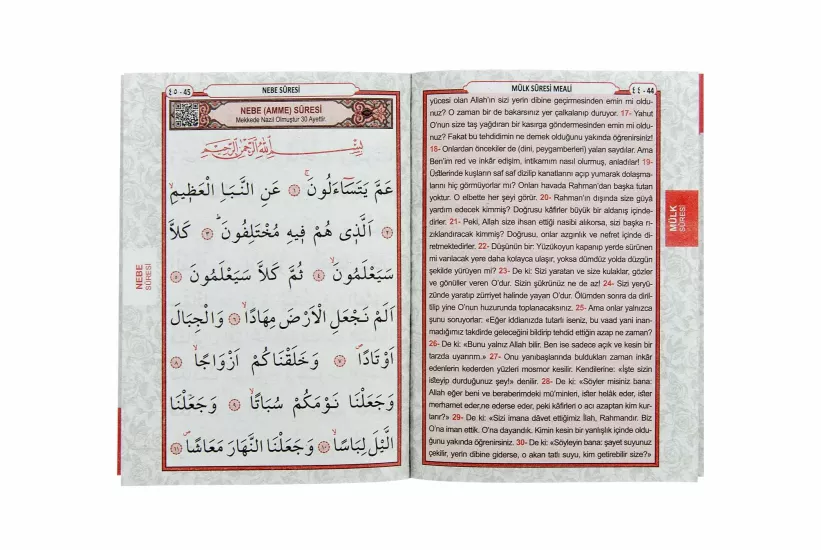 ٤٤ - 44
MÜLK SÛRESİ MEALİ
yücesi olan Allah'ın sizi yerin dibine geçirmesinden emin mi oldu-
nuz? O zaman bir de bakarsınız yer çalkalanıp duruyor. 17- Yahut
O'nun size taş yağdıran bir kasırga göndermesinden emin mi oldu-
nuz? Fakat bu tehdidimin ne demek olduğunu yakında öğrenirsiniz!
18- Onlardan öncekiler de (dini, peygamberleri) yalan saydılar. Ama
Ben'im red ve inkâr edişim, intikamım nasıl olurmuş, anladılar! 19-
Üstlerinde kuşların saf saf dizilip kanatlarını açıp yumarak dolaşma-
larını hiç görmüyorlar mı? Onları havada Rahman'dan başka tutan
yoktur. O elbette her şeyi görür. 20- Rahman'ın dışında size gûyâ
yardım edecek kimmiş? Doğrusu kâfirler büyük bir aldanış içinde-
dirler. 21- Peki, Allah size ihsan ettiği nasibi alıkorsa, sizi başka rı-
zıklandıracak kimmiş? Doğrusu, onlar azgınlık ve nefret içinde di-
retmektedirler. 22- Düşünün bir: Yüzükoyun kapanıp yerde sürünen
mi varılacak yere daha kolayca ulaşır, yoksa dümdüz yolda düzgün
şekilde yürüyen mi? 23- De ki: Sizi yaratan ve size kulaklar, gözler
ve gönüller veren O'dur. Sizin şükrünüz ne de az! 24- Sizi yeryü-
zünde yaratıp zürriyet halinde yayan O'dur. Ölümden sonra da diril-
tilip yine O'nun huzurunda toplanacaksınız. 25- Ama onlar yalnızca
şunu soruyorlar: «Eğer iddianızda tutarlı iseniz, bu vaad yani inan-
madığımız takdirde geleceğini bildirip tehdid ettiğin azap ne zaman?
26- De ki: «Bunu yalnız Allah bilir. Ben ise sadece açık ve kesin bir
tarzda uyarırım.» 27- Onu yanıbaşlarında buldukları zaman inkâr
edenlerin kederden yüzleri mosmor kesilir. Kendilerine: «İşte sizin
isteyip durduğunuz şey!» denilir. 28- De ki: «Söyler misiniz bana:
Allah eğer beni ve beraberimdeki mü'minleri, ister helâk eder, ister
merhamet eder,ne ederse eder, peki kâfirleri o acı azaptan kim kur-
tarır?» 29- De ki: «Sizi imana dâvet ettiğimiz İlah, Rahmandır. Biz
O'na iman ettik. O'na dayandık. Kimin kesin bir yanlışlık içinde oldu-
ğunu yakında öğrenirsiniz. 30- De ki: «Söyleyin bana: şayet suyunuz
çekilir, yerin dibine giderse, o akan tatlı suyu, kim getirebilir size?»
MÜLK
SÛRESİ
٤٥ - 45
NEBE SÛRESİ
NEBE (AMME) SÛRESİ
Mekkede Nazil Olmuştur 30 Ayettir.
بِسْمِ اللّٰهِ الرَّحْمٰنِ الرَّحِيمِ
عَمَّ يَتَسَاءَلُونَ ۚ ﴿١﴾ عَنِ النَّبَاِ الْعَظِيمِ ۙ
﴿٢﴾ اَلَّذِي هُمْ فِيهِ مُخْتَلِفُونَ ۜ ﴿٣﴾ كَلَّا
سَيَعْلَمُونَ ۙ ﴿٤﴾ ثُمَّ كَلَّا سَيَعْلَمُونَ ﴿٥﴾
اَلَمْ نَجْعَلِ الْاَرْضَ مِهَادًا ۙ ﴿٦﴾ وَالْجِبَالَ
اَوْتَادًا ۖ ﴿٧﴾ وَخَلَقْنَاكُمْ اَزْوَاجًا ۙ ﴿٨﴾
وَجَعَلْنَا نَوْمَكُمْ سُبَاتًا ۙ ﴿٩﴾ وَجَعَلْنَا
الَّيْلَ لِبَاسًا ۙ ﴿١٠﴾ وَجَعَلْنَا النَّهَارَ مَعَاشًا ۖ ﴿١١﴾
NEBE
SÛRESİ